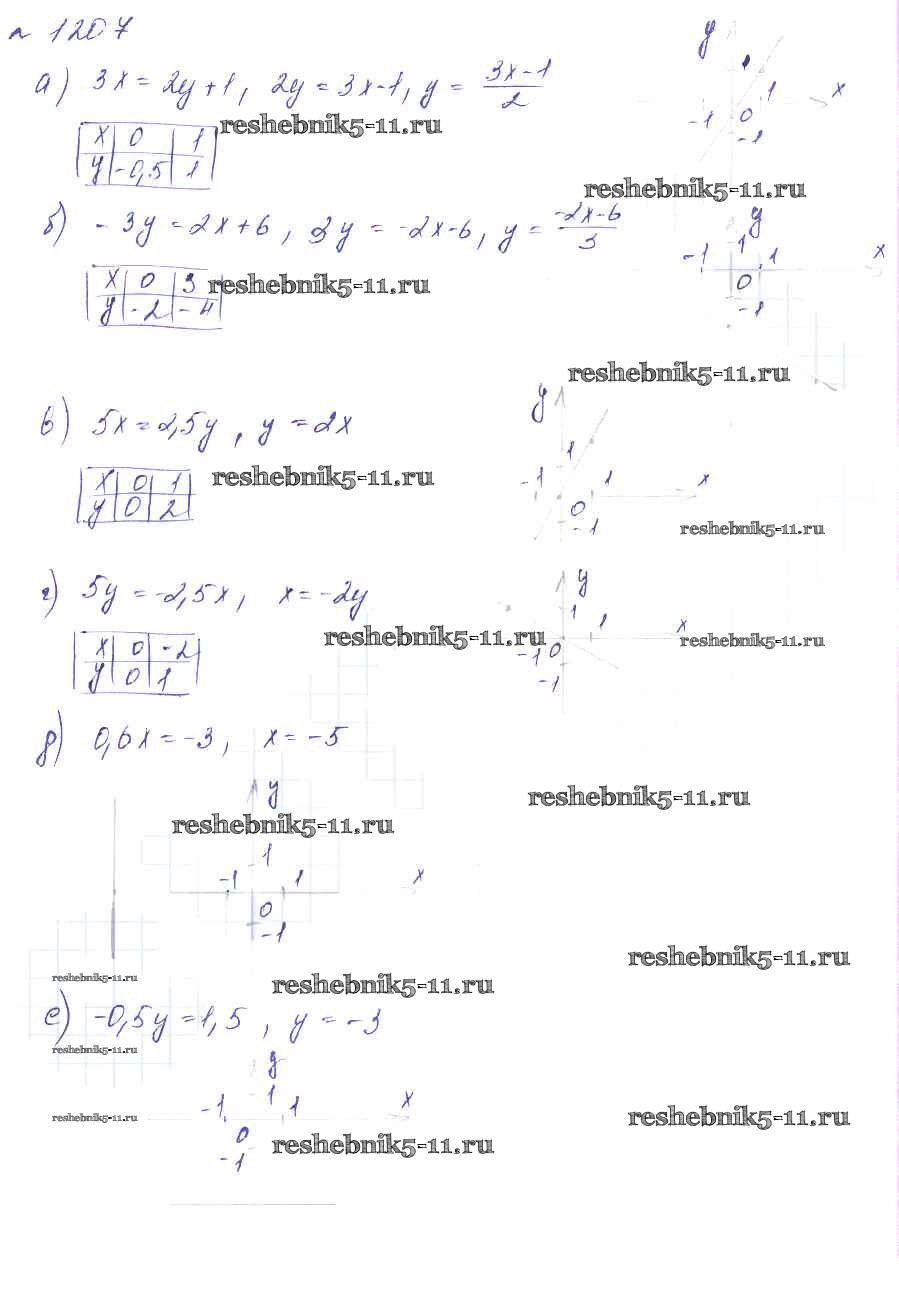 № 1207
y
а) 3x = 2y+1, 2y = 3x-1, y = 3x-1/2
1
1
x
reshebnik5-11.ru
-1 0
-1
x 0 1
y -0,5 1
reshebnik5-11.ru
б) -3y = 2x+6, 3y = -2x-6, y = -2x-6/3
y
-1 1 1 x
0
-1
x 0 3
y -2 -4
reshebnik5-11.ru
reshebnik5-11.ru
в) 5x = 2,5y, y = 2x
y
1
-1 1 x
0
-1
x 0 1
y 0 2
reshebnik5-11.ru
reshebnik5-11.ru
г) 5y = -2,5x, x = -2y
y
1 1 x
-1 0
-1
reshebnik5-11.ru
reshebnik5-11.ru
x 0 -2
y 0 1
д) 0,6x = -3, x = -5
y
reshebnik5-11.ru
reshebnik5-11.ru
1
-1 1 x
0
-1
reshebnik5-11.ru
reshebnik5-11.ru
reshebnik5-11.ru
е) -0,5y = 1,5, y = -3
reshebnik5-11.ru
y
1
-1 1 x
reshebnik5-11.ru
reshebnik5-11.ru
0
-1
reshebnik5-11.ru